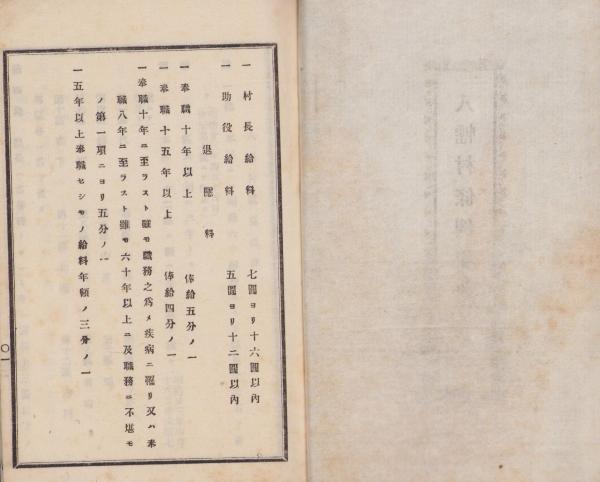 一 村長給料 七圓ヨリ十六圓以內
一 助役給料 五圓ヨリ十二圓以內
退隱料
一 奉職十年以上 俸給五分ノ一
一 奉職十五年以上 俸給四分ノ一
一 奉職十年ニ至ラスト雖モ職務之爲メ疾病ニ罹リ又ハ奉
職八年ニ至ラスト雖モ六十年以上ニ及職務ニ不堪モ
ノ第一項ニヨリ五分ノ一
一 五年以上奉職セシモノ給料年額ノ三分ノ一
八幡村條例